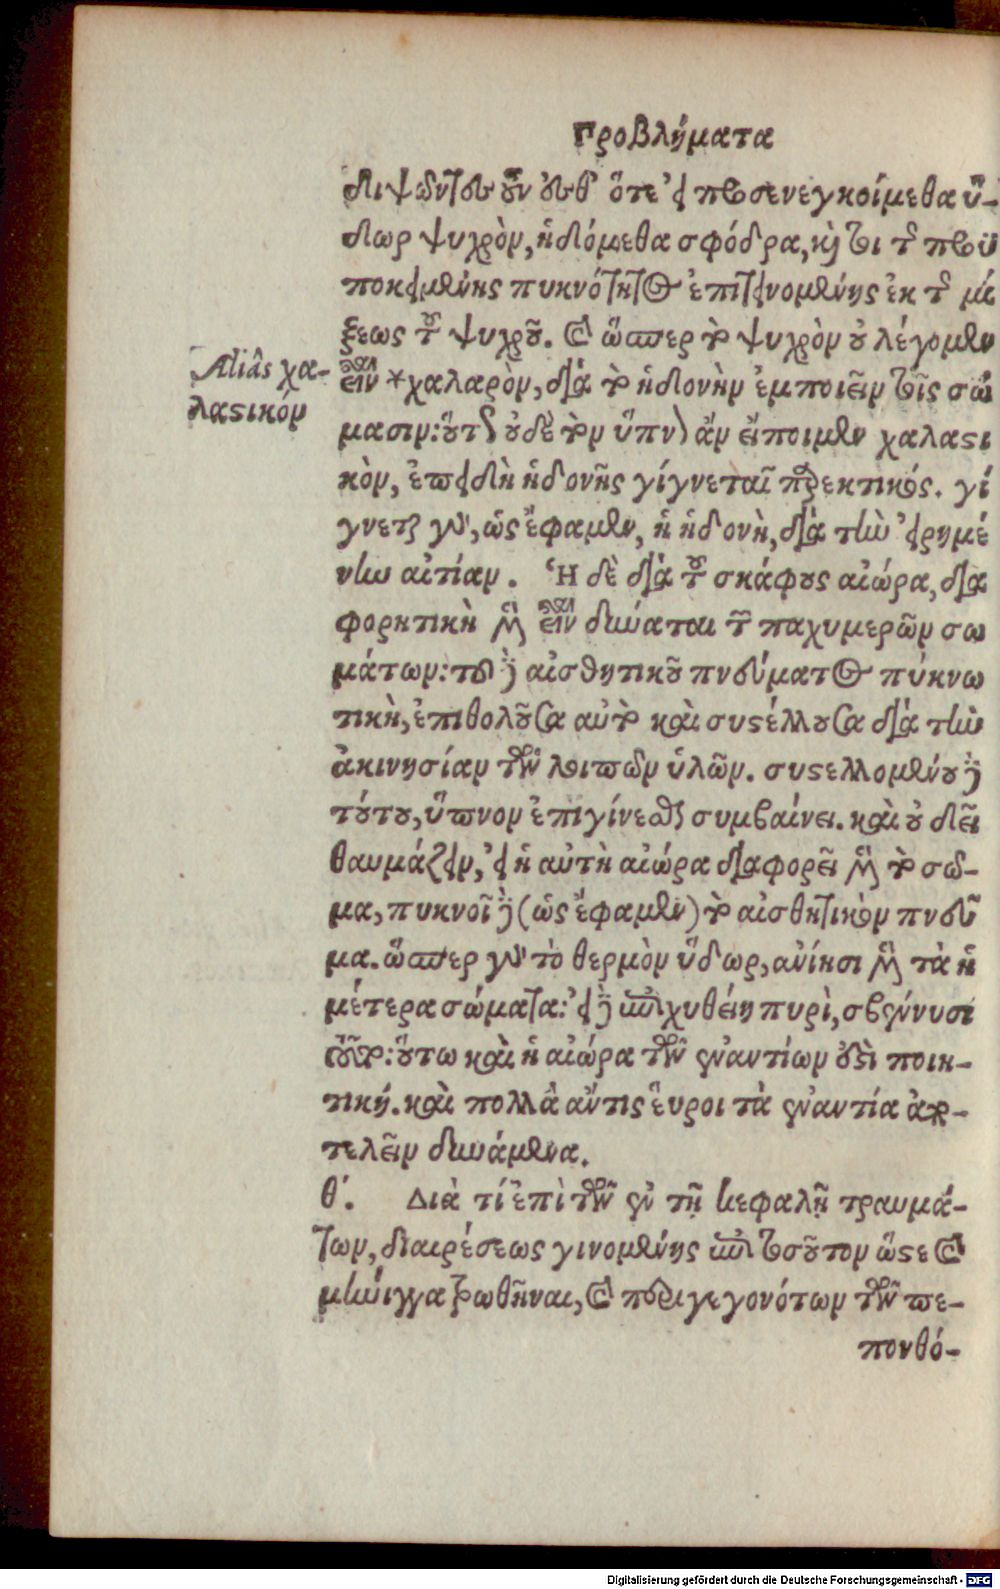 Προβλήματα
διψῶντες οὖν εὐθὺς ὅτε εἰ προσενεγκοίμεθα ὕ-
δωρ ψυχρὸν, ἡδόμεθα σφόδρα, καὶ τοι τῆς προϋ
ποκειμένης πυκνότητος ἐπιτεινομένης ἐκ τῆς μί
ξεως τοῦ ψυχροῦ. καὶ ὥσπερ τὸ ψυχρὸν οὐ λέγομεν
Aliâs χα-
λαστικόν
εἶναι *χαλαρὸν, διὰ τὸ ἡδονὴν ἐμποιεῖν τοῖς σώ
μασιν: οὕτως οὐδὲ τὸν ὕπνον ἂν εἴποιμεν χαλαστι
κὸν, ἐπειδὴ ἡδονῆς γίγνεται παρεκτικός. γί
γνεται γὰρ, ὡς ἔφαμεν, ἡ ἡδονὴ, διὰ τὴν εἰρημέ
νην αἰτίαν. Ἡ δὲ διὰ τοῦ σκάφους αἰώρα, δια
φορητικὴ μὲν εἶναι δύναται τῶν παχυμερῶν σω
μάτων: τοῦ δὲ αἰσθητικοῦ πνεύματος πυκνω
τικὴ, ἐπιθολοῦσα αὐτὸ καὶ συστέλλουσα διὰ τὴν
ἀκινησίαν τῶν λοιπῶν ὑλῶν. συστελλομένου δὲ
τούτου, ὕπνον ἐπιγίνεσθαι συμβαίνει. καὶ οὐ δεῖ
θαυμάζειν, εἰ ἡ αὐτὴ αἰώρα διαφορεῖ μὲν τὸ σῶ-
μα, πυκνοῖ δὲ (ὡς ἔφαμεν) τὸ αἰσθητικὸν πνεῦ
μα. ὥσπερ γὰρ τὸ θερμὸν ὕδωρ, ἀνίησι μὲν τὰ ἡ
μέτερα σώματα: εἰ δὲ ἐπιχυθείη πυρὶ, σβεννύσι
τοῦτο: οὕτω καὶ ἡ αἰώρα τῶν ἐναντίων ἐστὶ ποιη-
τική. καὶ πολλὰ ἄν τις εὕροι τὰ ἐναντία ἀπο-
τελεῖν δυνάμενα.
θʹ. Διὰ τί ἐπὶ τῶν ἐν τῇ κεφαλῇ τραυμά-
των, διαιρέσεως γινομένης ἐπὶ τοσοῦτον ὥστε καὶ
μήνιγγα τρωθῆναι, καὶ περιγεγονότων τῶν πε-
πονθό-
Digitalisierung gefördert durch die Deutsche Forschungsgemeinschaft - DFG